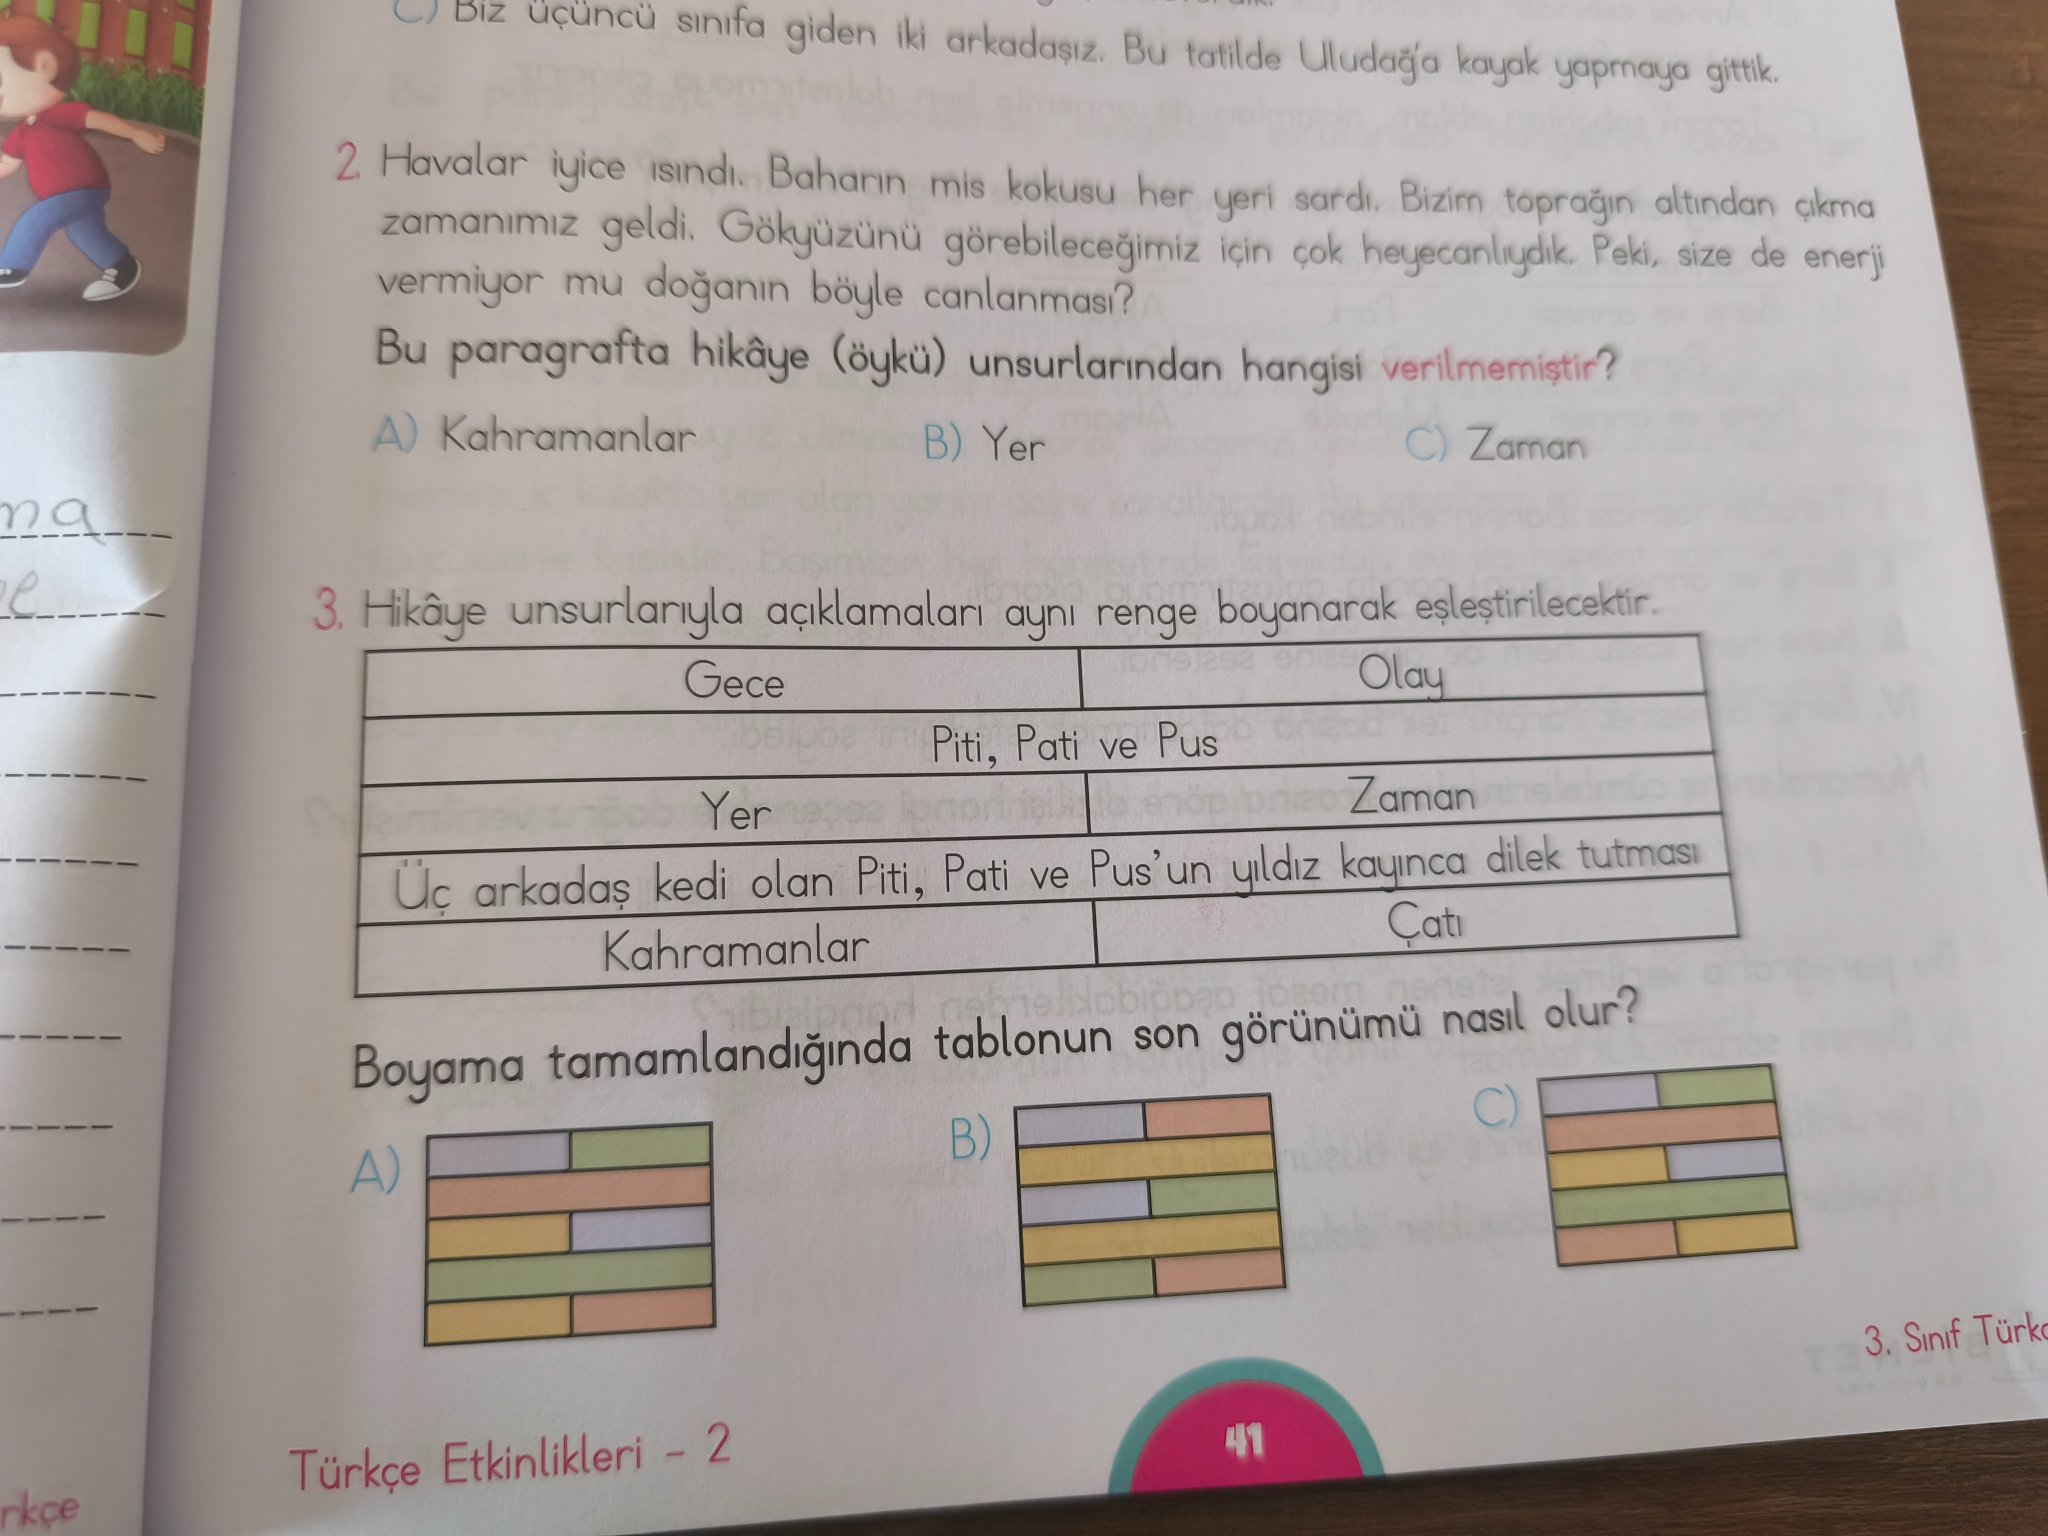 C) Biz üçüncü sınıfa giden iki arkadaşız. Bu tatilde Uludağ'a kayak yapmaya gittik.
2. Havalar iyice ısındı. Baharın mis kokusu her yeri sardı. Bizim toprağın altından çıkma
zamanımız geldi. Gökyüzünü görebileceğimiz için çok heyecanlıydık. Peki, size de enerji
vermiyor mu doğanın böyle canlanması?
Bu paragrafta hikâye (öykü) unsurlarından hangisi verilmemiştir?
A) Kahramanlar B) Yer C) Zaman
3. Hikâye unsurlarıyla açıklamaları aynı renge boyanarak eşleştirilecektir.
Gece Olay
Piti, Pati ve Pus
Yer Zaman
Üç arkadaş kedi olan Piti, Pati ve Pus'un yıldız kayınca dilek tutması
Kahramanlar Çatı
Boyama tamamlandığında tablonun son görünümü nasıl olur?
A) B) C)
3. Sınıf
Türkçe Etkinlikleri - 2
41